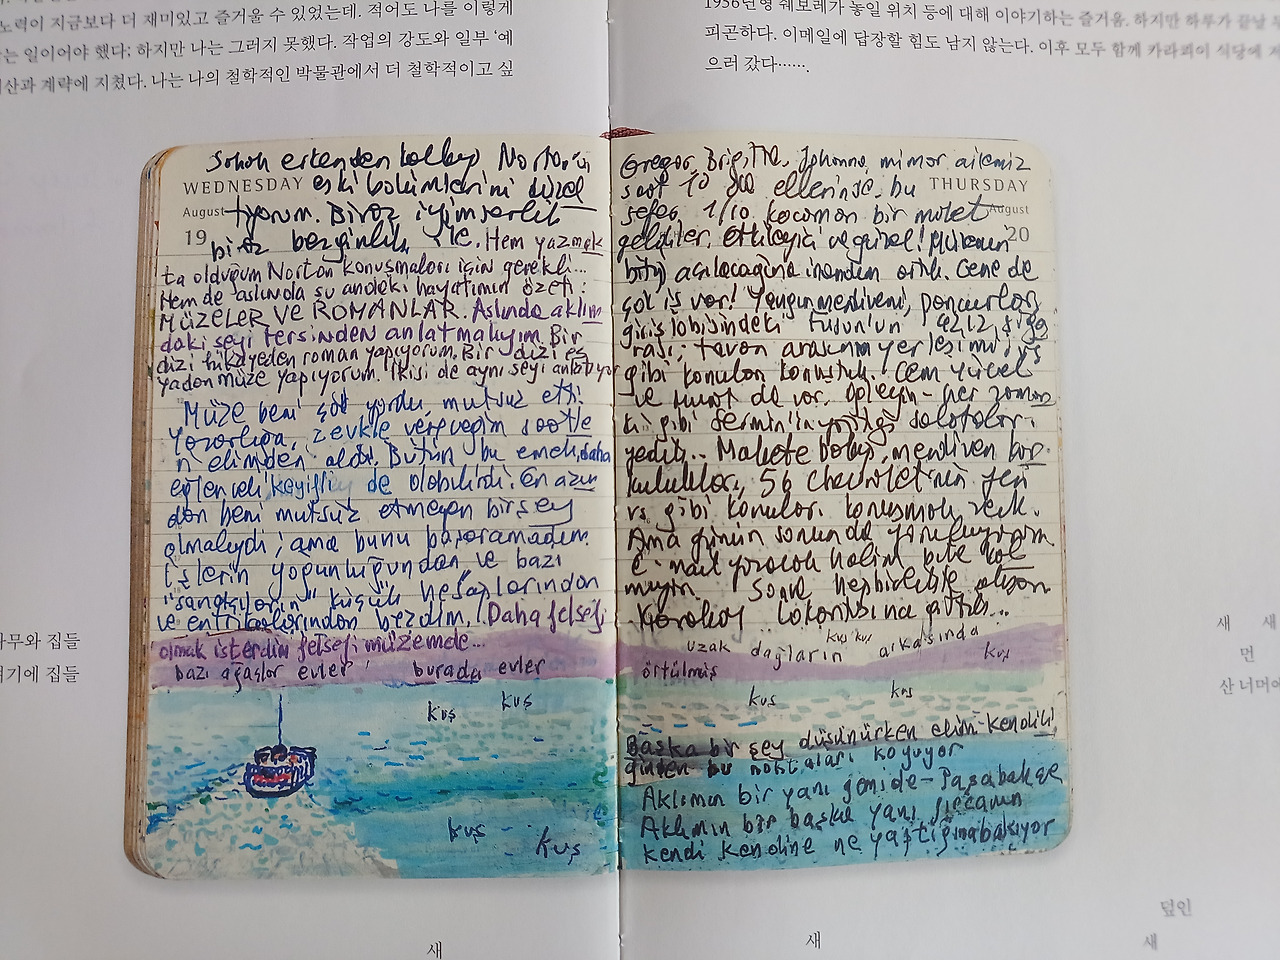 노력이 지금보다 더 재미있고 즐거울 수 있었는데. 적어도 나를 이렇게
는 일이어야 했다; 하지만 나는 그러지 못했다. 작업의 강도와 일부 ‘예
계략에 지쳤다. 나는 나의 철학적인 박물관에서 더 철학적이고 싶
1956년형 쉐보레가 놓일 위치 등에 대해 이야기하는 즐거움. 하지만 하루가 끝날
피곤하다. 이메일에 답장할 힘도 남지 않는다. 이후 모두 함께 카라쾨이 식당에
으러 갔다…….
Sabah erkenden kalkıp Norton'un
WEDNESDAY eski bölümlerini düzel
August tiyorum. Biraz iyimserlik
19 biraz bezginlik ile. Hem yazmak
ta olduğum Norton konuşmaları için gerekli...
Hem de aslında şu andaki hayatımın özeti:
MÜZELER VE ROMANLAR. Aslında aklım
daki şeyi tersinden anlatmalıyım. Bir
dizi hikâyeden roman yapıyorum. Bir dizi eş
yadan müze yapıyorum. İkisi de aynı şeyi anlatıyor
Müze beni çok yordu, mutsuz etti.
Yazarlığa, zevkle vereceğim saatle
ri elimden aldı. Bütün bu emek, daha
eğlenceli, keyifli de olabilirdi. En azın
dan beni mutsuz etmeyen bir şey
olmalıydı; ama bunu başaramadım.
İşlerin yoğunluğundan ve bazı
"sanatçıların" küçük hesaplarından
ve entrikalarından bezdim. Daha felsefi
olmak isterdim felsefi müzemde...
bazı ağaçlar evler burada evler
kuş kuş
kuş kuş
Gregor, Brigitte, Johanna mimar ailemiz
THURSDAY
saat 10 da ellerinde bu
August
sefer 1/10 kocaman bir maket
20
geldiler. Etkileyici ve güzel! Müzenin
bitip açılacağına inandım artık. Gene de
çok iş var! Yangın merdiveni, pancurlar
giriş lobisindeki Füsun'un 4212 siga
rası, tavan arasının yerleşimi vs
gibi konuları konuştuk. Cem Yücel
ve Murat da var. Öğleyin - her zaman
ki gibi Nermin'in yaptığı salatalar.
yedik.. Makete bakıp, merdiven kor
kulukları, 56 Chevrolet'nin yeri
vs gibi konuları konuşmak zevk.
Ama günün sonunda yoruluyorum
e-mail yazacak halim bile kal
mıyor. Sonra hep birlikte akşam
Karaköy lokantasına gittik...
kuş kuş
uzak dağların arkasında kuş
örtülmüş
kuş kuş
Başka bir şey düşünürken elim kendiliğ
inden bu noktaları koyuyor
Aklımın bir yanı gemide - Paşabahçe
Aklımın bir başka yanı
kendi kendine ne yaptığına bakıyor
나무와 집들
여기에 집들
새 새
먼
산 너머에
덮인
새 새 새